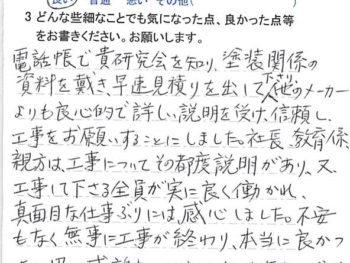 良い 普通 悪い その他(
3 どんな些細なことでも気になった点、良かった点等
をお書きください。お願いします。
電話帳で貴研究会を知り、塗装関係の
資料を戴き、早速見積りを出して下さり、他のメーカー
よりも良心的で詳しい説明を受け、信頼し、
工事をお願いすることにしました。社長、教育係、
親方は、工事についてその都度説明があり、又、
工事して下さる全員が実に良く働かれ、
真面目な仕事ぶりには、感心しました。不安
もなく無事に工事が終わり、本当に良かっ